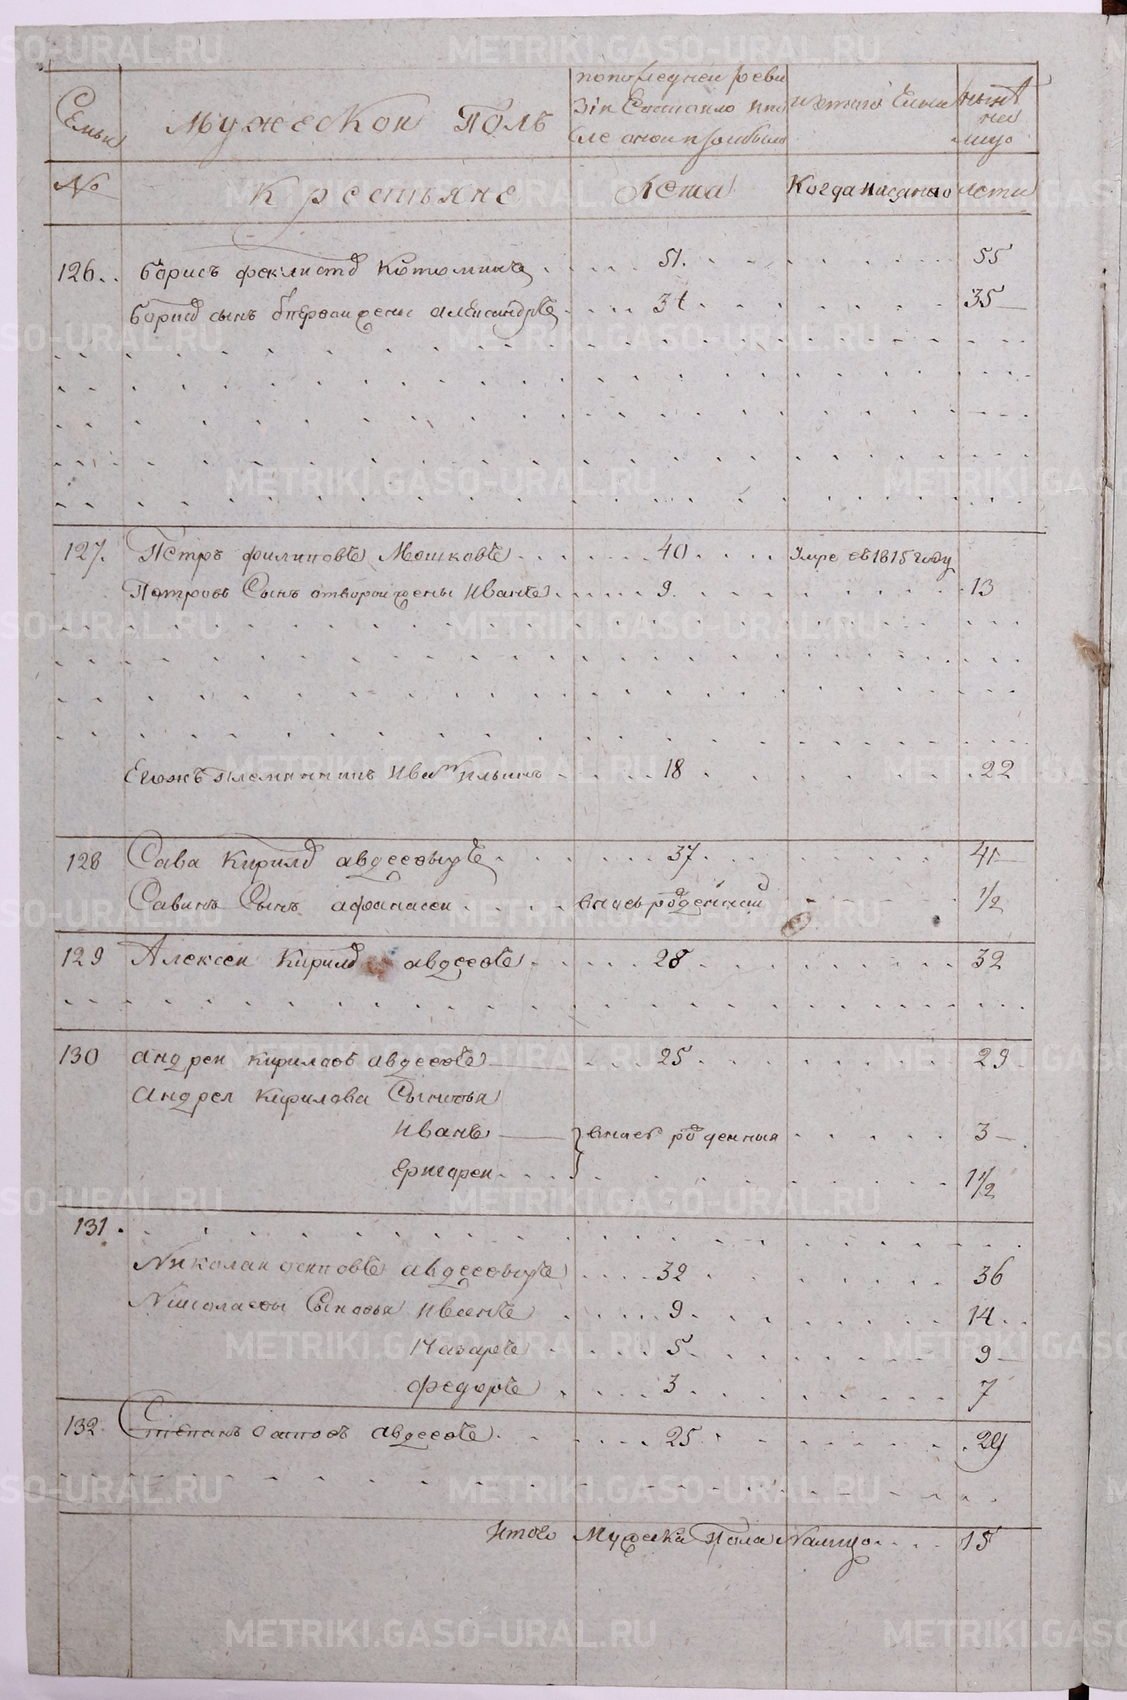 Семьи
Мужескои Полъ
по последнеи реви
зіи Состояло и по
сле онои прибыло
изтого Числа
ныне
лицо
№
Крестьяне
Лета
Когда имянно
лета
126. Борисъ феклистов Котюминъ 51. 55
Борисов сынъ отпервои жены александръ 31 35
127. Петръ филиповъ Мошковъ 40 Умре въ 1815 году
Петровъ Сынъ отвторои жены Иванъ 9 13
Егожъ племянникъ Иван Ильинъ 18 22
128 Сава Кирилов авдеевыхъ 37 41
Савинъ Сынъ афанасеи вновь рожденной 1/2
129 Алексеи Кирилов авдеевъ 28 32
130 андреи кириловъ авдеевъ 25 29
андрея кирилова Сыновья
Иванъ вновь рожденныя 3
1 1/2
131.
Николаи осиповъ авдеевыхъ 32 36
Николаевы Сыновья Иванъ 9 14
Назаръ 5 9
федоръ 3 7
132 Степанъ осиповъ авдеевъ 25 29
Итого Мужеска Пола Налицо 15
METRIKI.GASO-URAL.RU